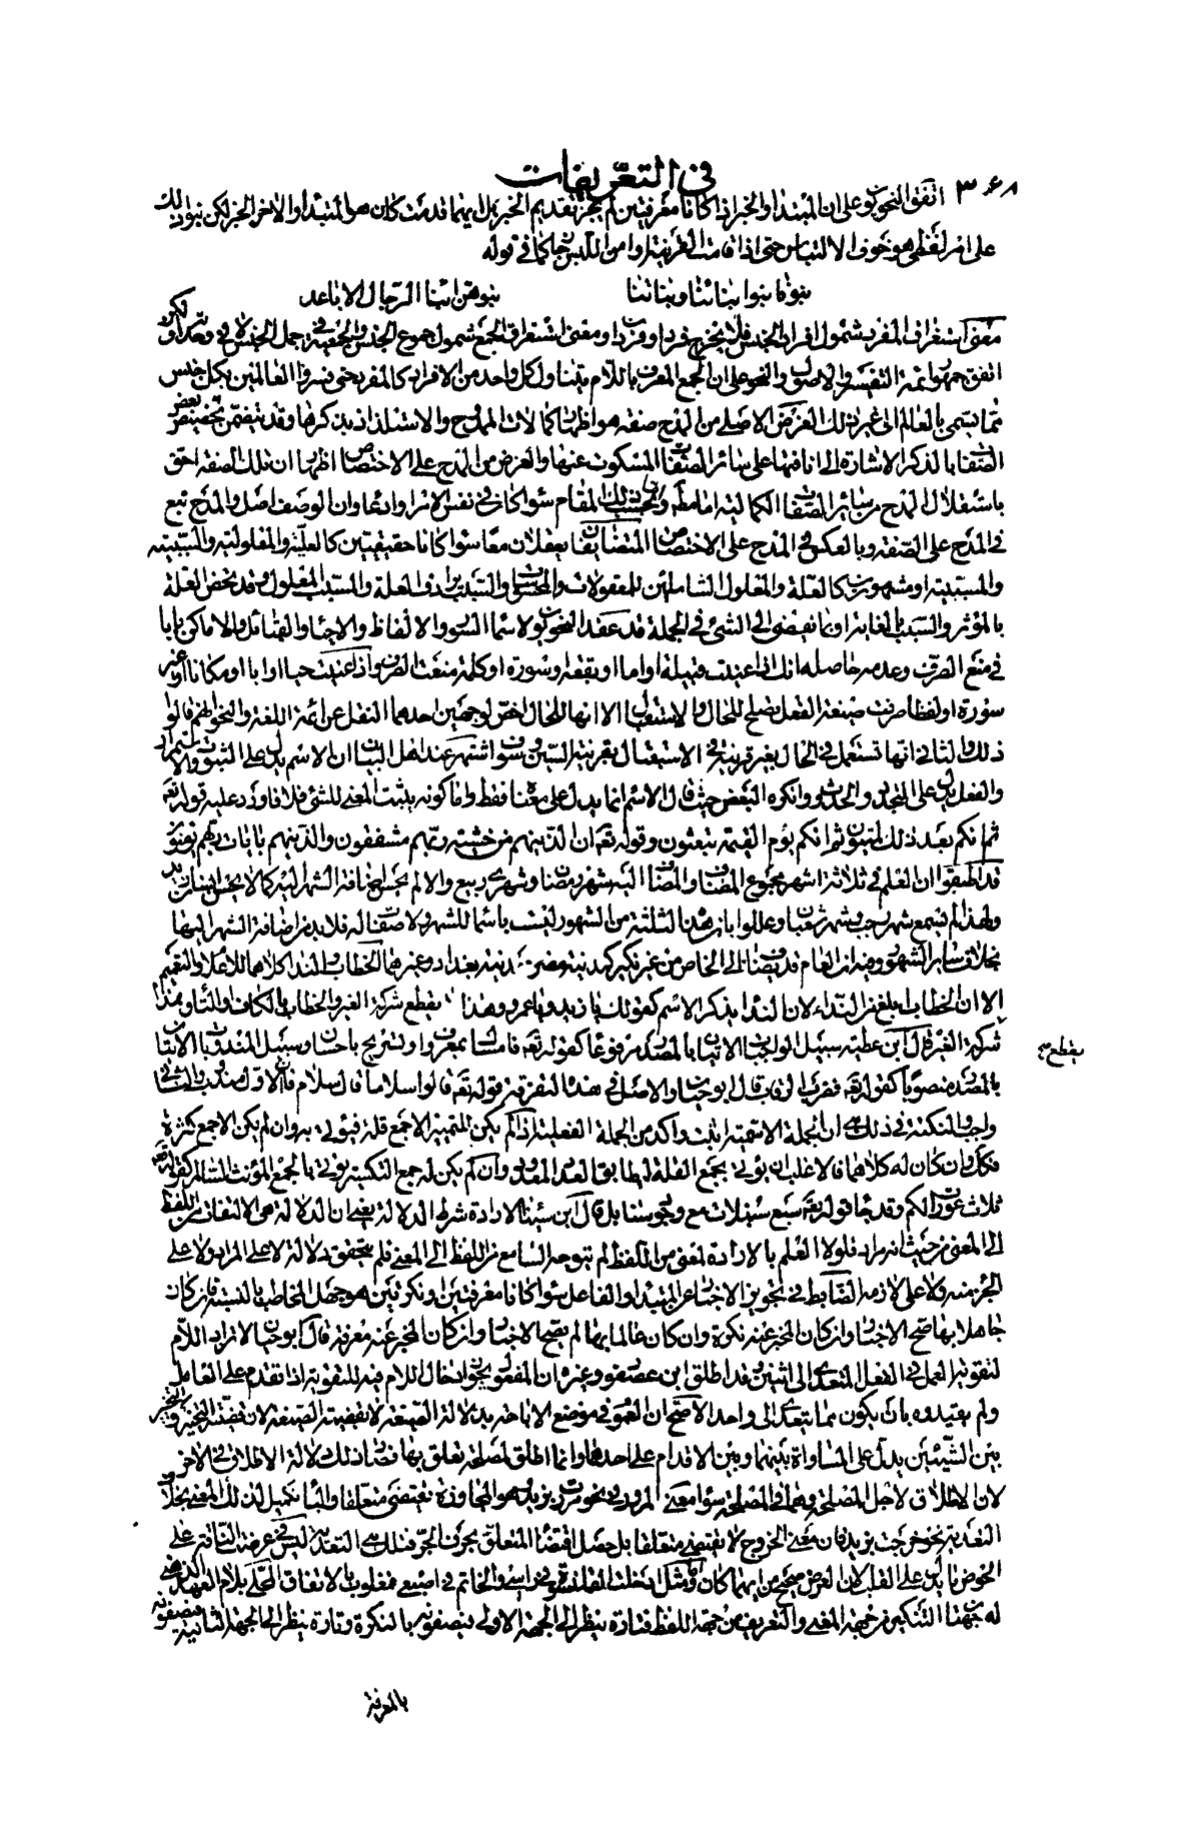 في التعريفات
٣٦٨ اتفق النحويون على ان المبتدا والخبر اذا كانا معرفتين لم يجز تقديم الخبر بل ايهما قدمت كان هو المبتدا والاخر الخبر لكن بنوا ذلك
على امر لفظي هو خوف الالتباس حتى اذا قامت القرينة او امن اللبس جاز كما في قوله
بنونا بنوا ابنائنا وبناتنا بنوهن ابنا الرجال الاباعد
معنى استغراق المفرد شمول افراد الجنس فلا يخرج فرد او فردان ومعنى استغراق الجمع شمول جموع الجنس والجمعية في جمل الجنس لا في وحدانه لكن
اتفق جمهور ائمة التفسير والاصول والنحو على ان الجمع المعرف باللام يتناول كل واحد من الافراد كالمفرد حتى فسروا العالمين بكل جنس
مما يسمى بالعالم الى غير ذلك الغرض الاصلي من المدح صفة هو اظهار كمالات الممدوح والاستلذاذ بذكرها وقد يتضمن تخصيص بعض
الصفات بالذكر الاشارة الى انافتها على سائر الصفات المسكوت عنها والغرض من المدح على الاختصاص اظهار ان تلك الصفة احق
باستقلال المدح من سائر الصفات الكمالية اما مطلقا او بحسب ذلك المقام سواء كان في نفس الامر او ادعاء وان الوصف اصل والمدح تبع
في المدح على الصفة وبالعكس في المدح على الاختصاص المتضايفان يعقلان معا سوا كانا حقيقيتين كالعلية والمعلولية والسببية
والمسببية او مشهورين كالعلة والمعلول الشاملتين للمعقولات والمحسوسات والسبب يرادف العلة والمسبب المعلول وقد تخص العلة
بالمؤثر والسبب بالغاية او بما يفضي الى الشئ في الجملة قد عقد النحويون لاسماء السور والالفاظ والاحياء والقبائل والاماكن بابا
في منع الصرف وعدمه حاصله انك ان اعنيت قبيلة او اما او بقعة او سورة او كلمة منعت الصرف وان اعنيت حيا او ابا او مكانا او غير
سورة او لفظا صرفت صيغة الفعل يصلح للحال والاستقبال الا انها للحال اخص لوجهين احدهما النقل عن ائمة اللغة والنحو انهم قالوا
ذلك والثاني انها تستعمل في الحال بغير قرينة في الاستقبال بقرينة السين وسوف اشتهر عند اهل البيان ان الاسم يدل على الثبوت والاستمرار
والفعل يدل على التجدد والحدوث وانكره البعض حيث قال الاسم انما يدل على معناه فقط واما كونه يثبت المعنى للشئ فلا فاورد عليه قوله تعه
ثم انكم بعد ذلك لميتون ثم انكم يوم القيمة تبعثون وقوله تعه ان الذين هم من خشية ربهم مشفقون والذين هم بايات ربهم يؤمنون
قد اطبقوا ان العلم في ثلاثة اشهر مجموع المضاف والمضاف اليه شهر رمضان وشهري ربيع والا لم يحسن اضافة الشهر اليه كما لا يحسن انسان زيد
ولهذا لم يسمع شهر رجب وشهر شعبان وعللوا بان هذه الثلثة من الشهور ليست باسما للشهر ولا صفات له فلا بد من اضافة الشهر اليها
بخلاف سائر الشهور وفيه ان العام قد يضاف الى الخاص من غير نكير كمدينة مصر ومدينة بغداد وغيرهما الخطاب والندا كلاهما للاعلام والتفهيم
الا ان الخطاب ابلغ من النداء لان الندا يذكر الاسم كقولك يا زيد ويا عمرو وهذا لا يقطع شركة الغير والخطاب بالكاف والتاء وهذا
يقطع صح
شركة الغير قال ابن عطية سبيل الواجبات الاتيان بالمصدر مرفوعا كقوله تعه فامساك بمعروف او تسريح باحسان وسبيل المندوبات الاتيان
بالمصدر منصوبا كقوله تعه فضرب الرقاب قال ابو حيان والاصل في هذه التفرقة قوله تعه قالوا سلاما قال سلام فان الاول مندوب والثاني
واجب والنكتة في ذلك هي ان الجملة الاسمية اثبت واكد من الجملة الفعلية اذا لم يكن للمميز الا جمع قلة فيؤتى به وان لم يكن الا جمع كثرة
فكذا وان كان له كلاهما فالاغلب ان يؤتى بجمع القلة ليطابق العدد المعدود وان لم يكن له جمع التكسير يؤتى بالجمع المؤنث السالم كقوله تعه
ثلاث عورات لكم وقد جا قوله تعه سبع سنبلات مع وجود سنابل قال ابن سينا الارادة شرط الدلالة يعنى ان الدلالة هي الالتفات من اللفظ
الى المعنى من حيث انه مراد فلولا العلم بالارادة لمعنى من اللفظ لم يتوجه السامع من اللفظ الى المعنى فلم يتحقق دلالة لا على المراد ولا على
الجزء منه ولا على لازمه الضابط في تجويز الاخبار عن المبتدا والفاعل سوا كانا معرفتين او نكرتين هو جهل المخاطب بالنسبة فان كان
جاهلا بها صح الاخبار وان كان المخبر عنه نكرة وان كان عالما بها لم يصح الاخبار وان كان المخبر عنه معرفة قال ابو حيان لا تزاد اللام
لتقوية العمل في الفعل المتعدى الى اثنين وقد اطلق ابن عصفور وغيره ان المفعول يجوز ادخال اللام فيه للتقوية اذا تقدم على العامل
ولم يقيدوه بان يكون مما يتعدى الى واحد الاصح ان العموم في موضع الاباحة بدلالة الصيغة لا بقضية الصيغة لان قضيته التخيير والتخيير
بين الشيئين يدل على المساواة بينهما وبين الاقدام على احدهما وانما اطلق لمصلحة تعلق بها فصار ذلك دلالة الاطلاق في الاخر
لان الاطلاق لاجل المصلحة وهما في المصلحة سوا معنى المرور في نحو مررت بزيد هو المجاوزة تقتضى متعلقا والباء تكميل لذلك المعنى بخلاف
التعدية نحو خرجت بزيد فان معنى الخروج لا يقتضى متعلقا بل حصل اقتضاء المتعلق بحرف الجر فتلك هي التعدية ليس في عرضت الناقة على
الحوض ما يدل على القلب لان العرض صحيح من ايهما كان وامثال ادخلت القلنسوة في راسى والخاتم في اصبعى مقلوب بالاتفاق المحلى بلام العهد الذهنى
له جهتان التنكير من جهة المعنى والتعريف من جهة اللفظ فتارة ينظر الى الجهة الاولى فيصفونه بالنكرة وتارة ينظر الى الجهة الثانية فيصفونه
بالمعرفة